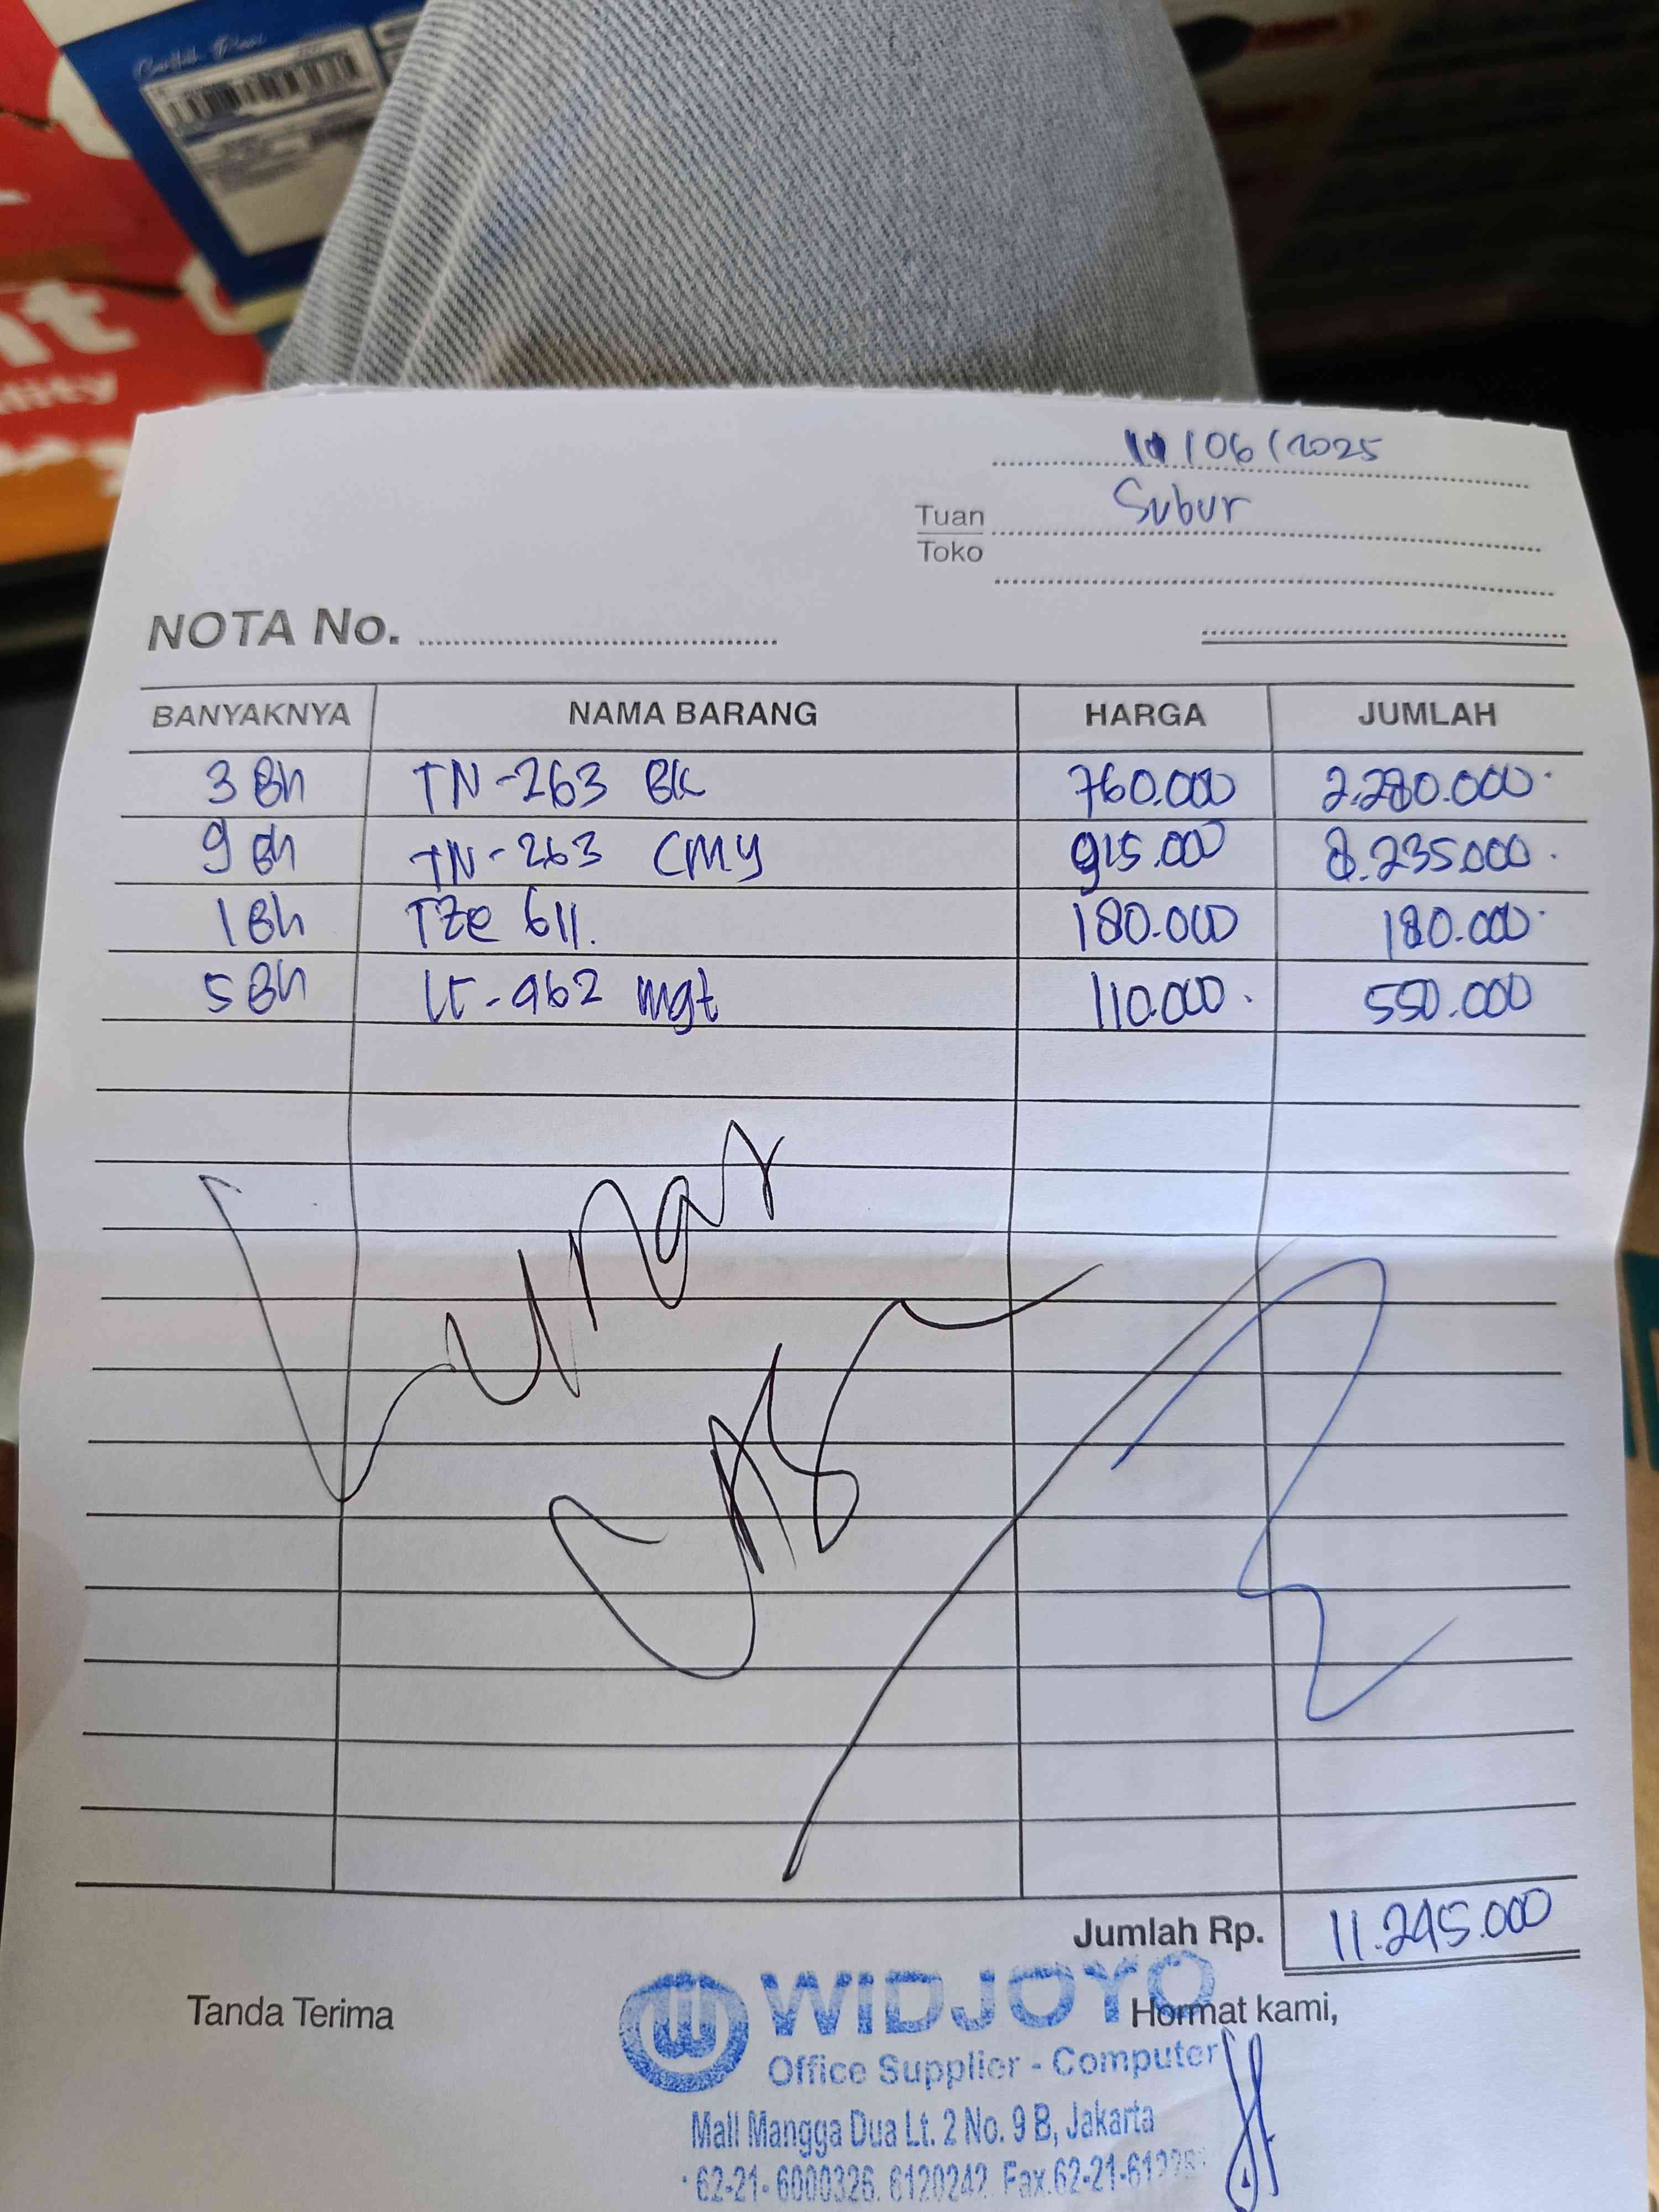 11/06/2025
Tuan Subur
Toko
NOTA No.
BANYAKNYA NAMA BARANG HARGA JUMLAH
3 Bh TN-263 BK 760.000 2.280.000
9 Bh TN-263 CMY 915.000 8.235.000
1 Bh TZe 611. 180.000 180.000
5 Bh 962 mgt 110.000 550.000
Lunas
CAS
Jumlah Rp. 11.245.000
Tanda Terima
Hormat kami,
WIDJOYO
Office Supplier - Computer
Mall Mangga Dua Lt. 2 No. 9 B, Jakarta
62-21- 6000326. 6120242. Fax.62-21-